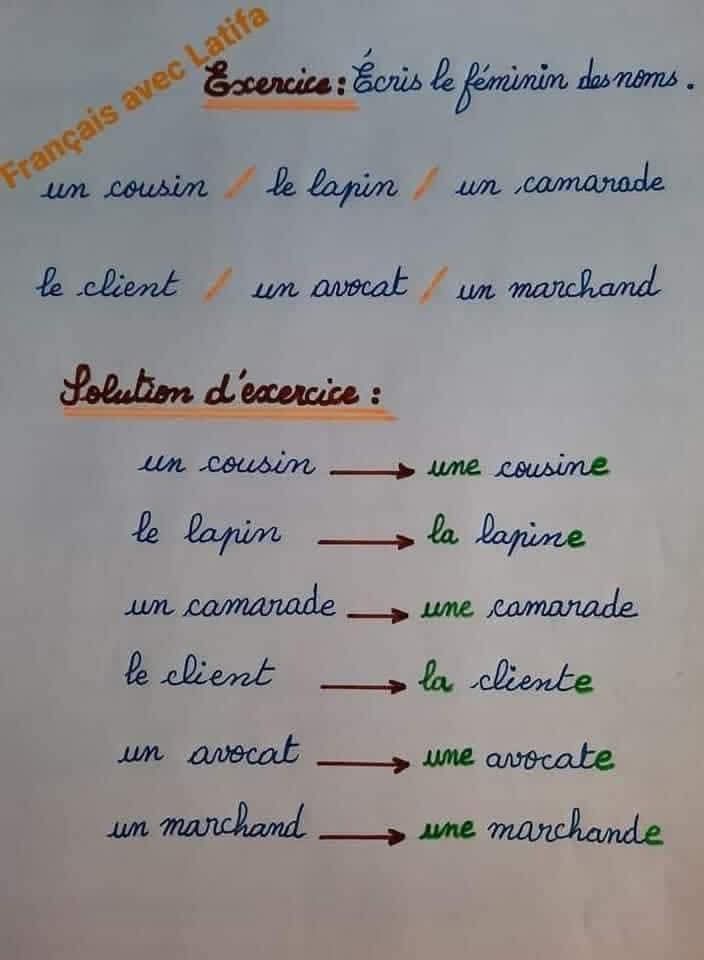 Français avec Latifa
Exercice : Écris le féminin des noms .
un cousin / le lapin / un camarade
le client / un avocat / un marchand
Solution d'exercice :
un cousin → une cousine
le lapin → la lapine
un camarade → une camarade
le client → la cliente
un avocat → une avocate
un marchand → une marchande